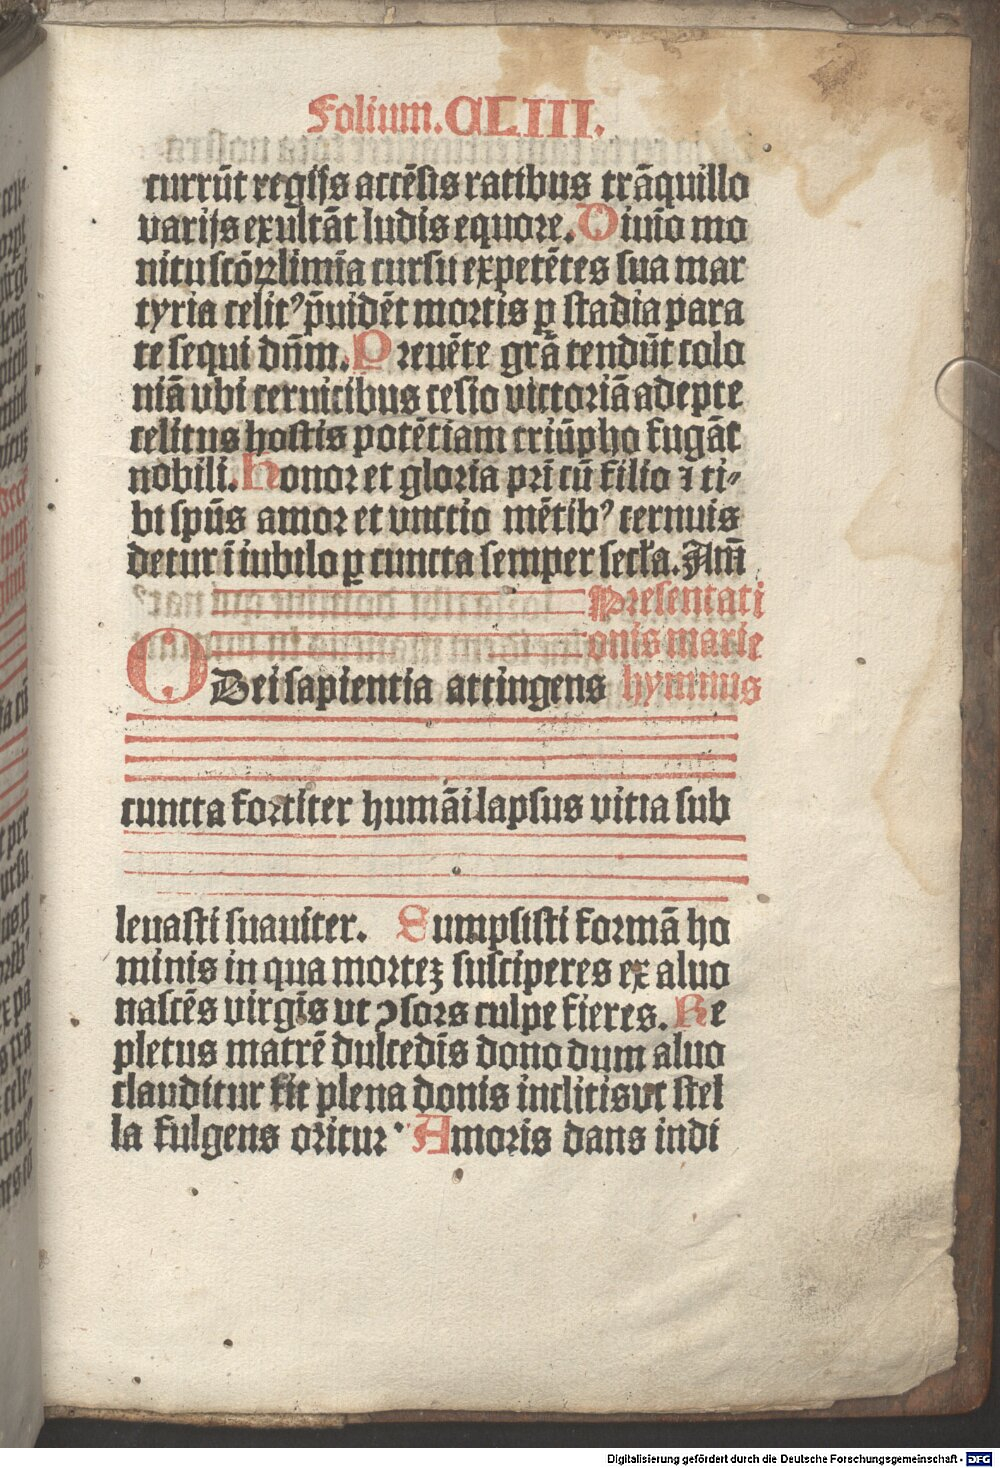 Folium. CLIII.
currūt regijs accēsis ratibus trāquillo
varijs exultāt ludis equore. Diuīo mo
nitu scōꝝ limīa cursu expetētes sua mar
tyria celitꝰ p̄uidēt mortis ꝑ stadia para
te sequi dn̄m. Preuēte gr̄a tendūt colo
niā vbi ceruicibus cesio victoriā adepte
celitus hostis potētiam triūpho fugāt
nobili. Honor et gloria pr̄i cū filio ⁊ ti⸗
bi spūs amor et vnctio mētibꝰ ternuis
detur ī iubilo ꝑ cuncta semper secl̄a. Am̄
Presentati
onis marie
O Dei sapientia attingens hymnus
cuncta fortiter humāi lapsus vitia sub
leuasti suauiter. Sumpsisti formā ho
minis in qua mortez susciperes ex aluo
nascēs virgīs vt ↄsors culpe fieres. Re
pletus matrē dulcedīs dono dum aluo
clauditur fit plena donis inclitis vt stel
la fulgens oritur. Amoris dans indi
Digitalisierung gefördert durch die Deutsche Forschungsgemeinschaft - DFG